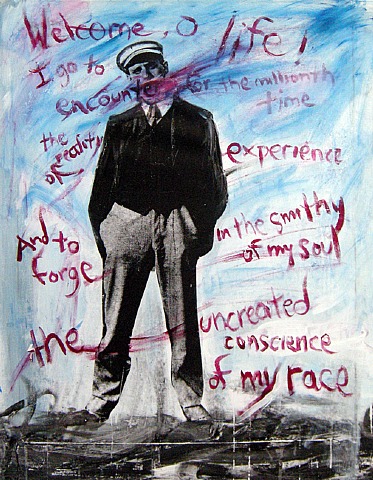 Welcome, O life!
I go to
encounter for the millionth
time
the reality
of experience
And to
forge
in the smithy
of my soul
the uncreated
conscience
of my race